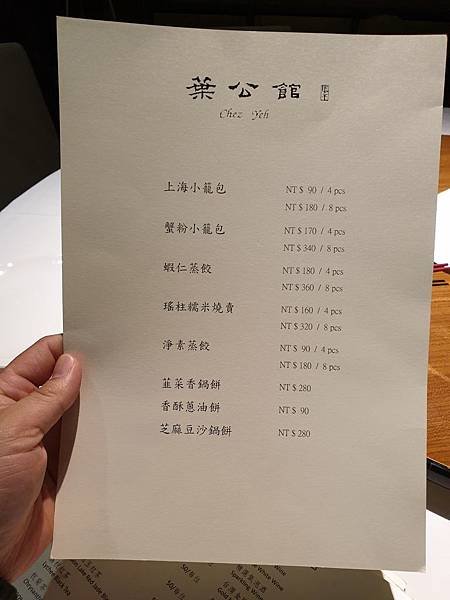 葉公館
Chez Yeh
上海小籠包 NT $ 90 / 4 pcs
NT $ 180 / 8 pcs
蟹粉小籠包 NT $ 170 / 4 pcs
NT $ 340 / 8 pcs
蝦仁蒸餃 NT $ 180 / 4 pcs
NT $ 360 / 8 pcs
瑤柱糯米燒賣 NT $ 160 / 4 pcs
NT $ 320 / 8 pcs
淨素蒸餃 NT $ 90 / 4 pcs
NT $ 180 / 8 pcs
韮菜香鍋餅 NT $280
香酥蔥油餅 NT $ 90
芝麻豆沙鍋餅 NT $280